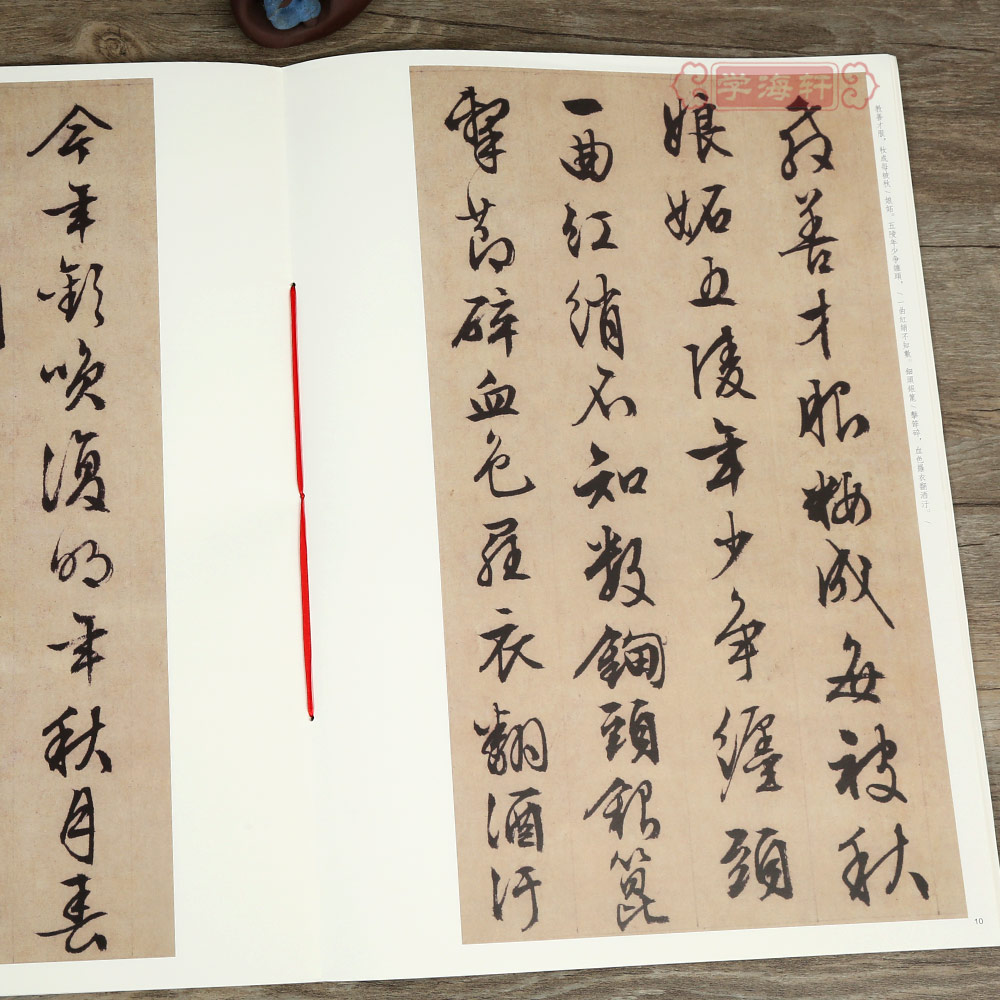 学海轩
教善才服粧成每被秋
娘妬五陵年少爭纏頭
一曲紅綃不知數鈿頭銀篦
擊節碎血色羅衣翻酒汙
今年歡咲復明年秋月春
教善才服，妝成每被秋/娘妬。五陵年少爭纏頭，/一曲紅綃不知數。鈿頭銀篦/擊節碎，血色羅衣翻酒汙。/
10